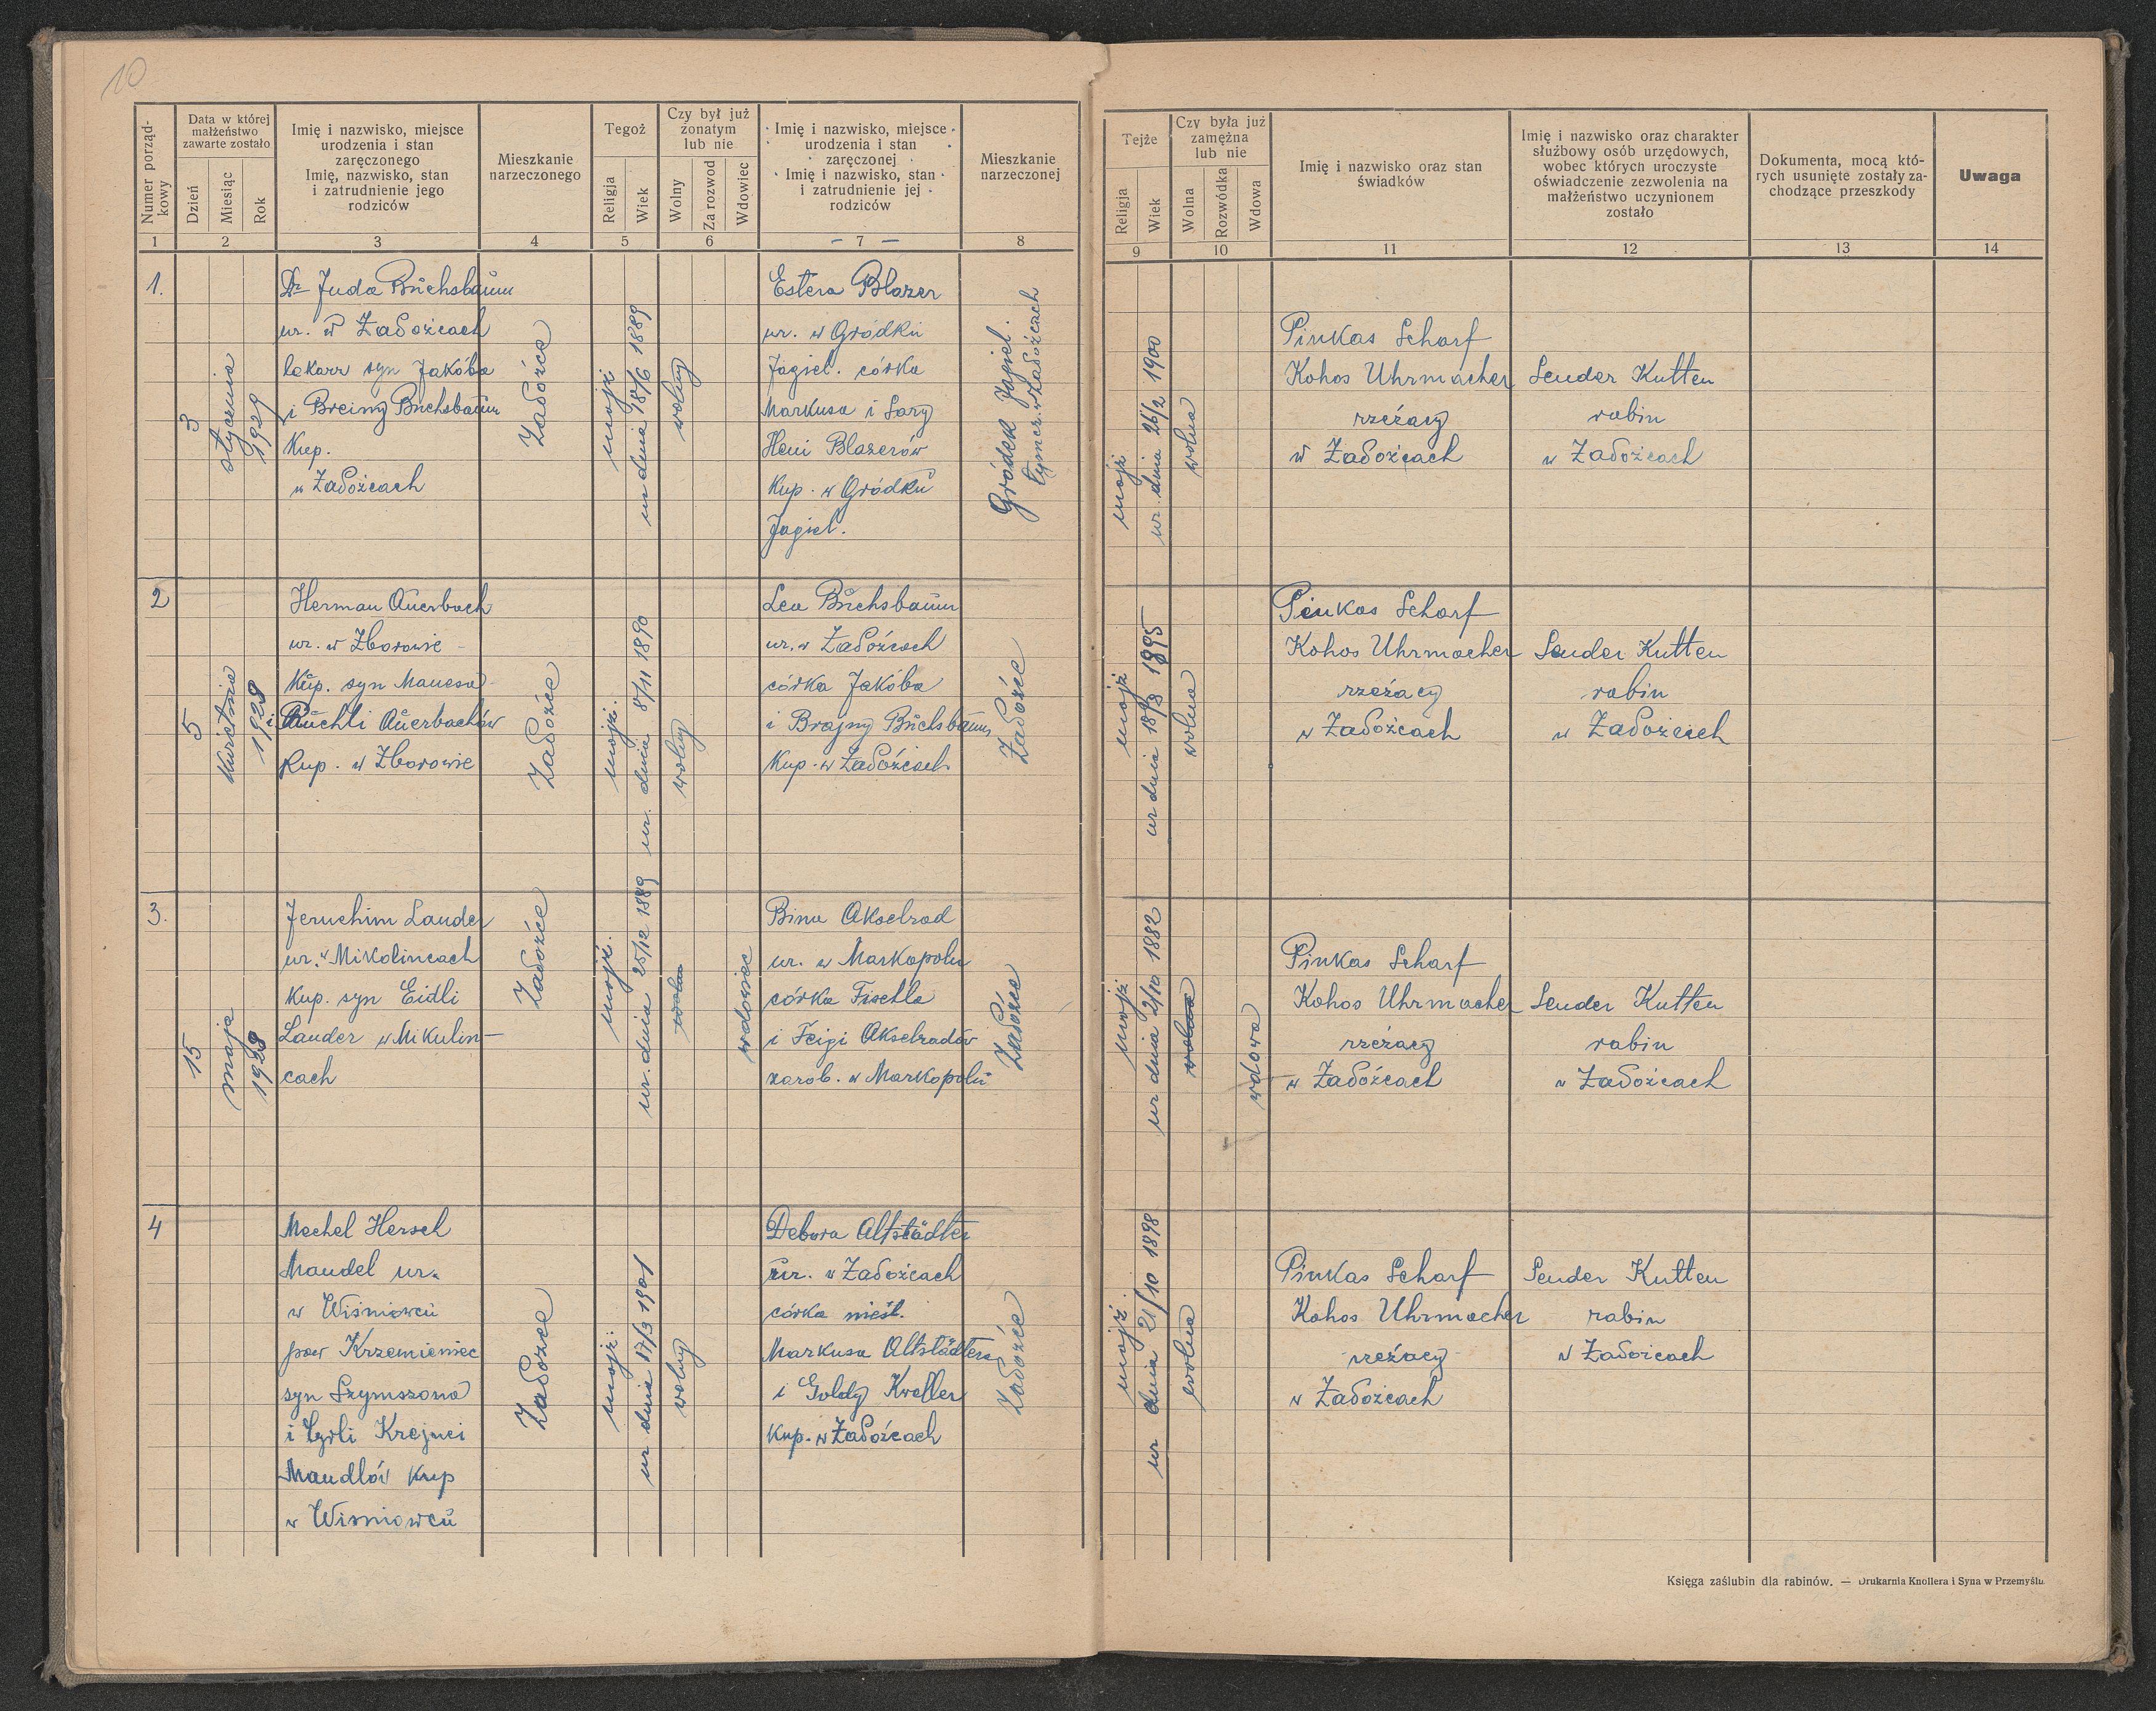 10
Numer porząd-
kowy
Data w której
małżeństwo
zawarte zostało
Dzień
Miesiąc
Rok
Imię i nazwisko, miejsce
urodzenia i stan
zaręczonego
Imię, nazwisko, stan
i zatrudnienie jego
rodziców
Mieszkanie
narzeczonego
Tegoż
Religja
Wiek
Czy był już
żonatym
lub nie
Wolny
Za rozwod
Wdowiec
Imię i nazwisko, miejsce
urodzenia i stan
zaręczonej
Imię i nazwisko, stan
i zatrudnienie jej
rodziców
Mieszkanie
narzeczonej
Tejże
Religja
Wiek
Czy była już
zamężna
lub nie
Wolna
Rozwódka
Wdowa
Imię i nazwisko oraz stan
świadków
Imię i nazwisko oraz charakter
służbowy osób urzędowych,
wobec których uroczyste
oświadczenie zezwolenia na
małżeństwo uczynionem
zostało
Dokumenta, mocą któ-
rych usunięte zostały za-
chodzące przeszkody
Uwaga
1 2 3 4 5 6 — 7 — 8 9 10 11 12 13 14
1.
3
stycznia
1929
Dr Juda Büchsbaum
ur. w Załoźcach
lekarz syn Jakóba
i Breiny Buchsbaum
Kup.
w Załoźcach
Załoźce
mojż
ur dnia 18/6 1889
wolny
Estera Blazer
ur. w Gródku
Jagiel. córka
Markusa i Sary
Heni Blazerów
Kup. w Gródku
Jagiel.
Gródek Jagiel.
tymcz. w Załoźcach
mojż
ur. dnia 26/2 1900
wolna
Pinkas Scharf
Kohos Uhrmacher
rzeźacy
w Załoźcach
Sender Kutten
rabin
w Załoźcach
2
5
kwietnia
1928
Herman Auerbach
ur. w Zborowie
Kup. syn Manesa
i Ruchli Auerbachów
Kup. w Zborowie
Załoźce
mojż.
ur. dnia 8/11 1890
wolny
Lea Büchsbaum
ur. w Załoźcach
córka Jakóba
i Brajny Büchsbaum
Kup. w Załoźcach
Załoźce
mojż
ur dnia 18/3 1895
wolna
Pinkas Scharf
Kohos Uhrmacher
rzeźacy
w Załoźcach
Sender Kutten
rabin
w Załoźcach
3.
15
maja
1928
Jeruchim Lauder
ur. w Mikolincach
Kup. syn Eidli
Lauder w Mikulin-
cach
Załoźce
mojż.
ur. dnia 25/12 1889
wdowiec
Bina Akselrad
ur. w Markopolu
córka Fischla
i Feigi Akselradów
zarob. w Markopolu
Załoźce
mojż
ur dnia 2/10 1882
wolna
wdowa
Pinkas Scharf
Kohos Uhrmacher
rzeźacy
w Załoźcach
Sender Kutten
rabin
w Załoźcach
4
Mechel Hersch
Mandel ur.
w Wiśniowcu
pow Krzemieniec
syn Szymszona
i Cyrli Krejnci
Mandlów Kup
w Wisniowcu
Załoźce
mojż:
ur dnia 17/3 1901
wolny
Debora Altstädter
ur. w Załoźcach
córka nieśl.
Markusa Altstädtera
i Goldy Kreller
Kup. w Załoźcach
Załoźce
mojż.
ur dnia 21/10 1898
wolna
Pinkas Scharf
Kohos Uhrmacher
rzeźacy
w Załoźcach
Sender Kutten
rabin
w Załoźcach
Księga zaślubin dla rabinów. — Drukarnia Knollera i Syna w Przemyślu